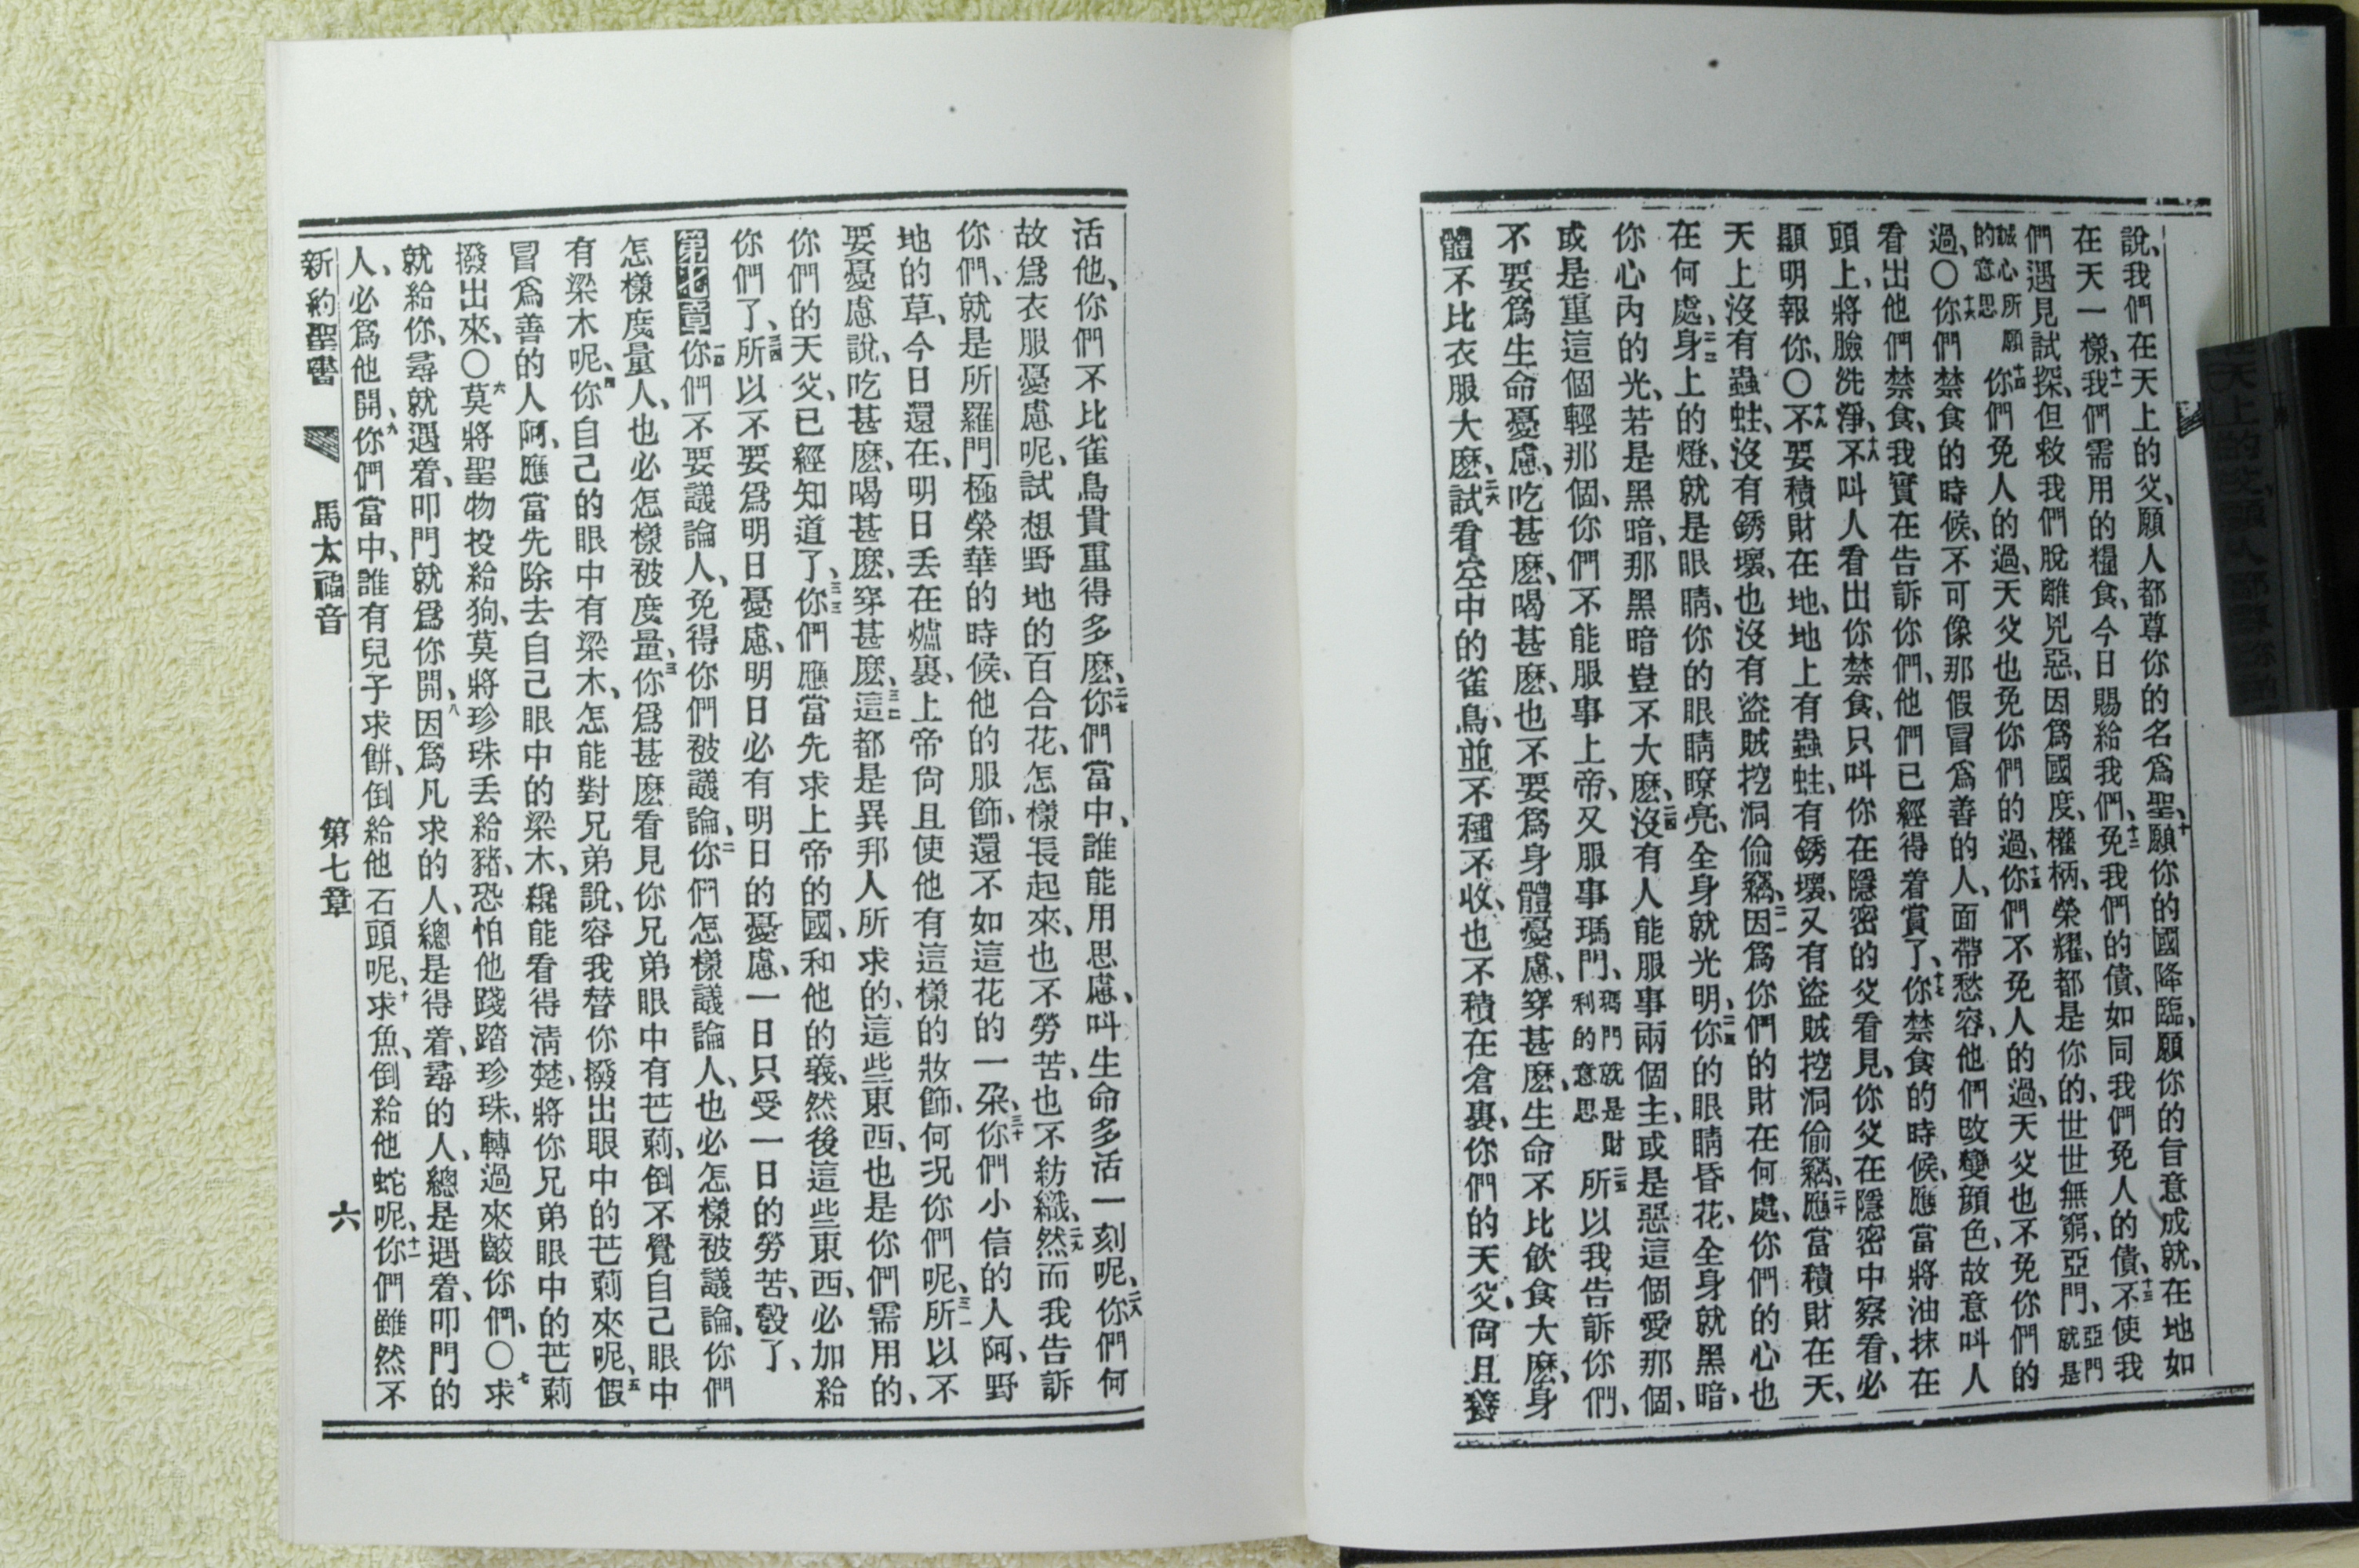 說、我們在天上的父、願人都尊你的名爲聖、十願你的國降臨、願你的旨意成就、在地如
在天一樣、十一我們需用的糧食、今日賜給我們、十二免我們的債、如同我們免人的債、十三不使我
們遇見試探、但救我們脫離兇惡、因爲國度、權柄、榮耀、都是你的、世世無窮、亞門、亞門就是
誠心所願的意思十四你們免人的過、天父也免你們的過、十五你們不免人的過、天父也不免你們的
過、〇十六你們禁食的時候、不可像那假冒爲善的人、面帶愁容、他們改變顔色、故意叫人
看出他們禁食、我實在告訴你們、他們已經得着賞了、十七你禁食的時候、應當將油抹在
頭上、將臉洗淨、十八不叫人看出你禁食、只叫你在隱密的父看見、你父在隱密中察看、必
顯明報你、〇十九不要積財在地、地上有蟲蛀、有銹壞、又有盜賊挖洞偷竊、二十應當積財在天、
天上沒有蟲蛀、沒有銹壞、也沒有盜賊挖洞偷竊、二一因爲你們的財在何處、你們的心也
在何處、二二身上的燈、就是眼睛、你的眼睛瞭亮、全身就光明、二三你的眼睛昏花、全身就黑暗、
你心內的光、若是黑暗、那黑暗豈不大麽、二四沒有人能服事兩個主、或是惡這個愛那個、
或是重這個輕那個、你們不能服事上帝、又服事瑪門、瑪門就是財利的意思二五所以我告訴你們、
不要爲生命憂慮、吃甚麽、喝甚麽、也不要爲身體憂慮、穿甚麽、生命不比飲食大麽、身
體不比衣服大麽、二六試看空中的雀鳥、並不種不收、也不積在倉裏、你們的天父、尙且養
活他、你們不比雀鳥貴重得多麽、二七你們當中、誰能用思慮、叫生命多活一刻呢、二八你們何
故爲衣服憂慮呢、試想野地的百合花、怎樣長起來、也不勞苦、也不紡織、二九然而我告訴
你們、就是所羅門極榮華的時候、他的服飾、還不如這花的一朶、三十你們小信的人阿、野
地的草、今日還在、明日丢在爐裏、上帝尙且使他有這樣的妝飾、何況你們呢、三一所以不
要憂慮說、吃甚麽、喝甚麽、穿甚麽、三二這都是異邦人所求的、這些東西、也是你們需用的、
你們的天父、已經知道了、三三你們應當先求上帝的國、和他的義、然後這些東西、必加給
你們了、三四所以不要爲明日憂慮、明日必有明日的憂慮、一日只受一日的勞苦、彀了、
第七章一你們不要議論人、免得你們被議論、二你們怎樣議論人、也必怎樣被議論、你們
怎樣度量人、也必怎樣被度量、三你爲甚麽看見你兄弟眼中有芒莿、倒不覺自己眼中
有梁木呢、四你自己的眼中有梁木、怎能對兄弟說、容我替你撥出眼中的芒莿來呢、五假
冒爲善的人阿、應當先除去自己眼中的梁木、纔能看得淸楚、將你兄弟眼中的芒莿
撥出來、〇六莫將聖物投給狗、莫將珍珠丢給豬、恐怕他踐踏珍珠、轉過來齩你們、〇七求
就給你、尋就遇着、叩門就爲你開、八因爲凡求的人、總是得着、尋的人、總是遇着、叩門的
人、必爲他開、九你們當中、誰有兒子求餅、倒給他石頭呢、十求魚、倒給他蛇呢、十一你們雖然不
新約聖書 馬太福音 第七章 六